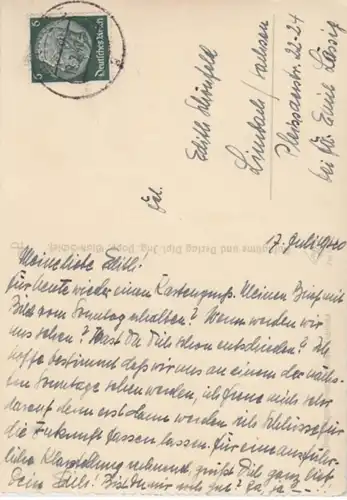 6
Deutsches Reich
Frl.
Edith Schönfeld
Limbach/Sachsen
Pleissaerstr. 22-24
bei Fa. Emil Lässig
17. Juli 1940
Meine liebe Edith!
Für heute wieder einen Kartengruß. Meinen Brief mit
Bild vom Sonntag erhalten? Wann werden wir
uns sehen? Hast Du Dich schon entschieden? Ich
hoffe bestimmt daß wir uns an einem der nächs-
ten Sonntage sehen werden, ich freue mich sehr
darauf denn erst dann werden sich Schlüsse für
die Zukunft fassen lassen. Für eine ausführ-
liche Klarstellung grüßt Dich ganz lieb
Dein Bist Du mir noch gut? Ja, ja —